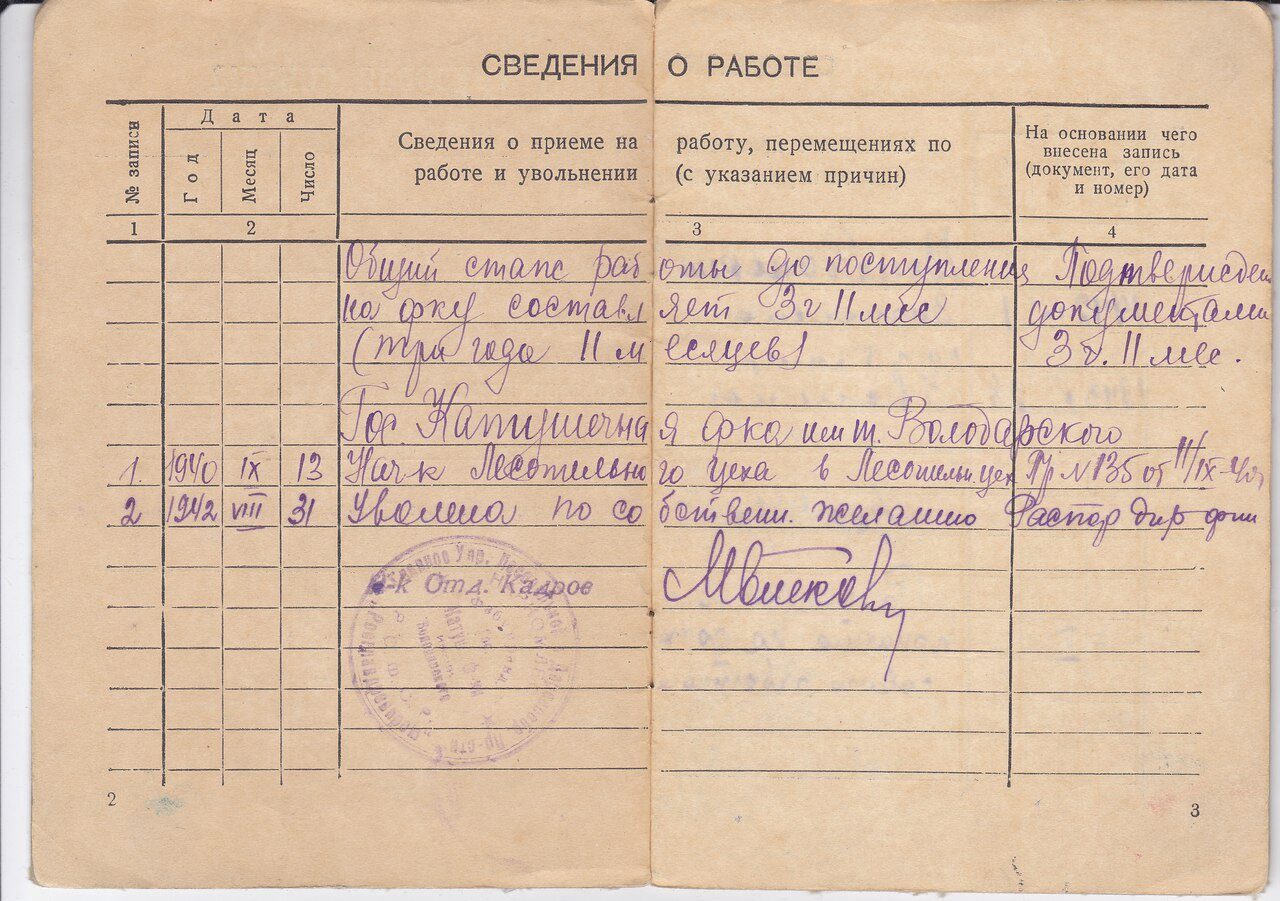 СВЕДЕНИЯ О РАБОТЕ
№ записи
Дата
Год
Месяц
Число
Сведения о приеме на работу, перемещениях по
работе и увольнении (с указанием причин)
На основании чего
внесена запись
(документ, его дата
и номер)
1 2 3 4
Общий стаж работы до поступления Подтвержден
на фку составляет 3 г 11 мес документами
(три года 11 месяцев) 3 г. 11 мес.
Гос. Катушечная фка им т. Володарского
1. 1940 IX 13 Нач-к Лесопильного цеха в Лесопильн. цех Пр № 135 от 11/IX-40г
2 1942 VIII 31 Уволена по собственн. желанию Распор дир фки
-к Отд. Кадров
2
3